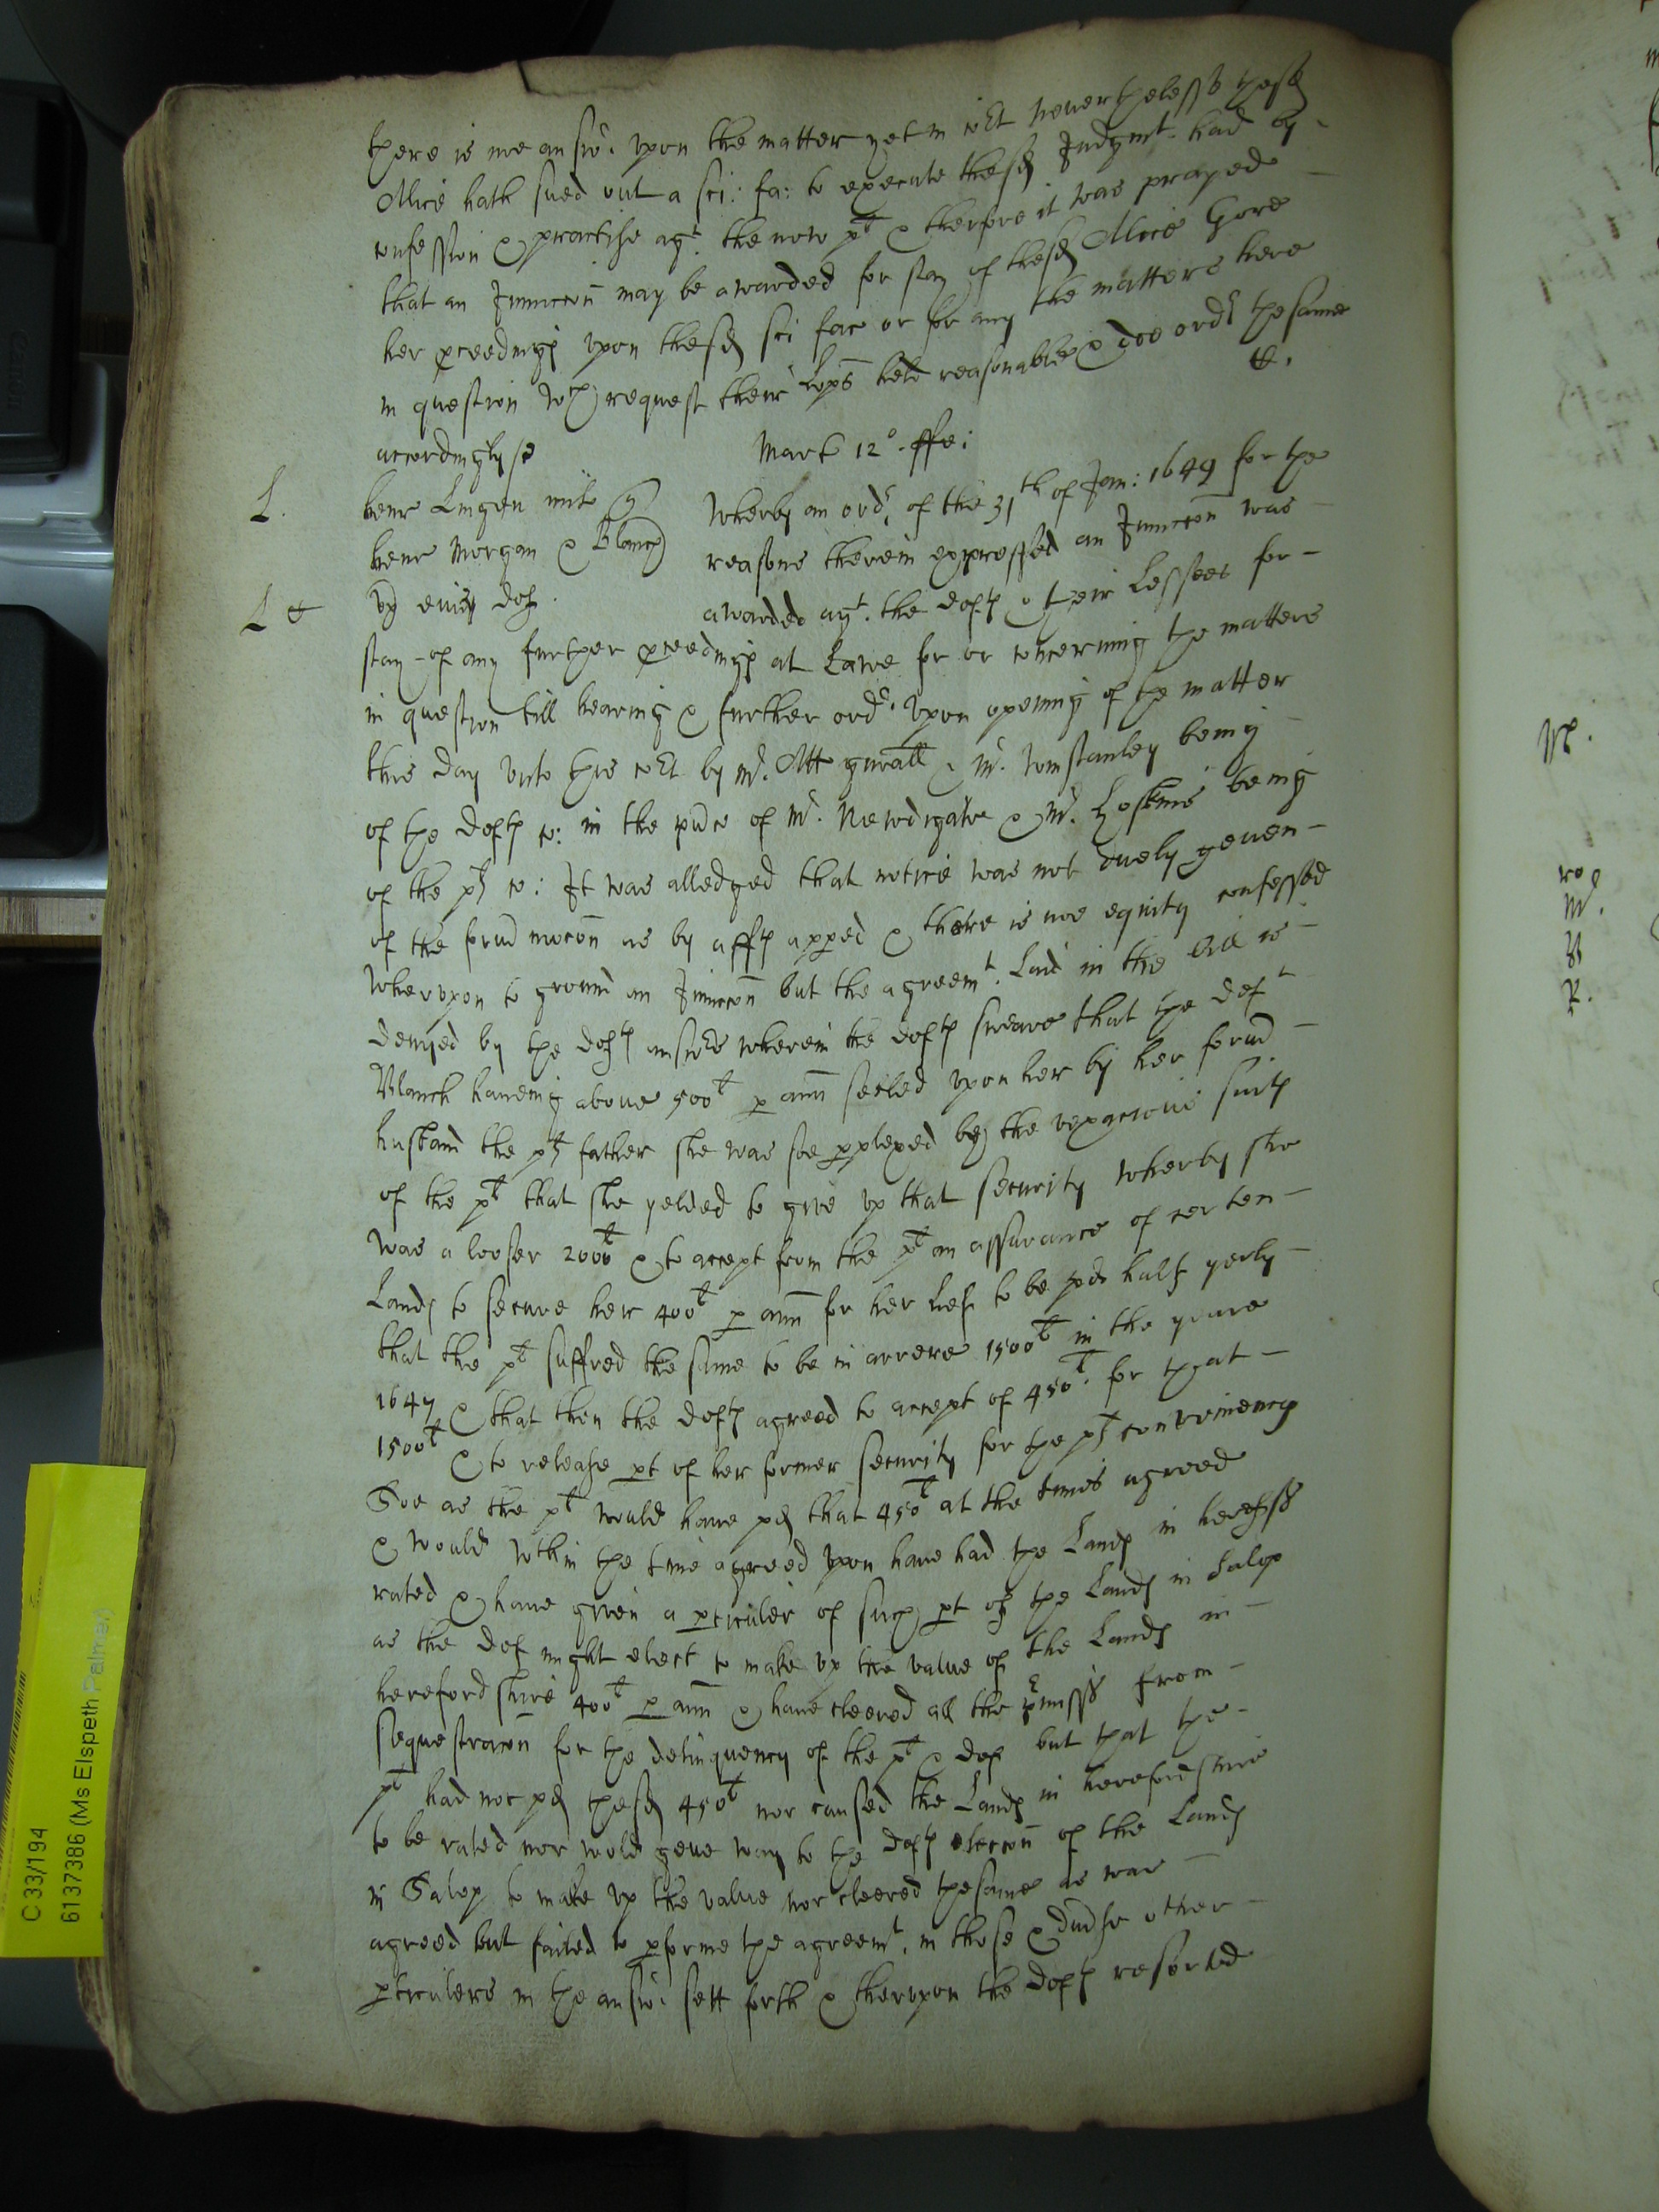 there is noe answ: vpon the matter yet in Cot Neuertheless thesd
Alice hath sued out a sci: fa: to execute thesd Judgmt. had by
confession & practise agt. the now plt & therfore it was prayed
that an Iniuccon may be awarded for stay of thesd Alice Gore
her pceedings vpon thesd sci fac or for any the matters here
in question Wch request their Lopps held reasonable & doe order the same
accordingly
Mart 12o. ffr:
L.
henr Lingen milt q
henr Morgan & Blanch
vx eius defts.
L
Wherby an ordr. of the 31th of Jan: 1649 for the
reasons therein expressed an Iniuccon was
awarded agt. the defts & their Lessees for
stay of any further pceedings at Lawe for or concerning the matters
in question till hearing & further ordr. Vpon opening of the matter
this day vnto this Cot by Mr. Att gnrall & Mr. Winstanley being
of the defts co: in the pnce of Mr. Newdigate & Mr. Hoskins being
of the plts co: It was alledged that notice was not duely geuen
of the formd mocon as by affts appeed & there is noe equity confessed
Whervpon to ground an Iniuccon but the agreemt. Laid in the bill is
denyed by the defts answers wherein the defts sweare that the deft
Blanch haueing above 500l p ann setled vpon her by her formd
husband the plts father she was soe pplexed by the vexacious suits
of the plt that she yelded to give vp that security Wherby she
Was a looser 2000l & to accept from the plt an assurance of certen
Lands to secure her 400l p ann for her Lief to be pd half yerly
that the plt suffred the same to be in arrere 1500l in the yeare
1647 & that then the defts agreed to accept of 450l. for that
1500l & to release pt of her former security for the plts conveniency
Soe as the plt would haue pd that 450l at the times agreed
& would wthin the time agreed vpon haue had the Lands in herefss
rated & haue given a pticuler of such pt of the Lands in Salop
as the def might elect to make vp the value of the Lands in
herefordshire 400l p ann & haue cleered all the pmisss from
sequestracon for the delinquency of the plt & def but that the
plt had not pd thesd 450l nor caused the Lands in herefordshire
to be rated nor wold geue way to the defts eleccon of the Lands
in Salop to make vp the value nor cleered thesame as was
agreed but failed to pforme the agreemt. in these & diuse other
pticulers in the answ: sett forth & thervpon the defts resorted
C 33/194
6137386 (Ms Elspeth Palmer)